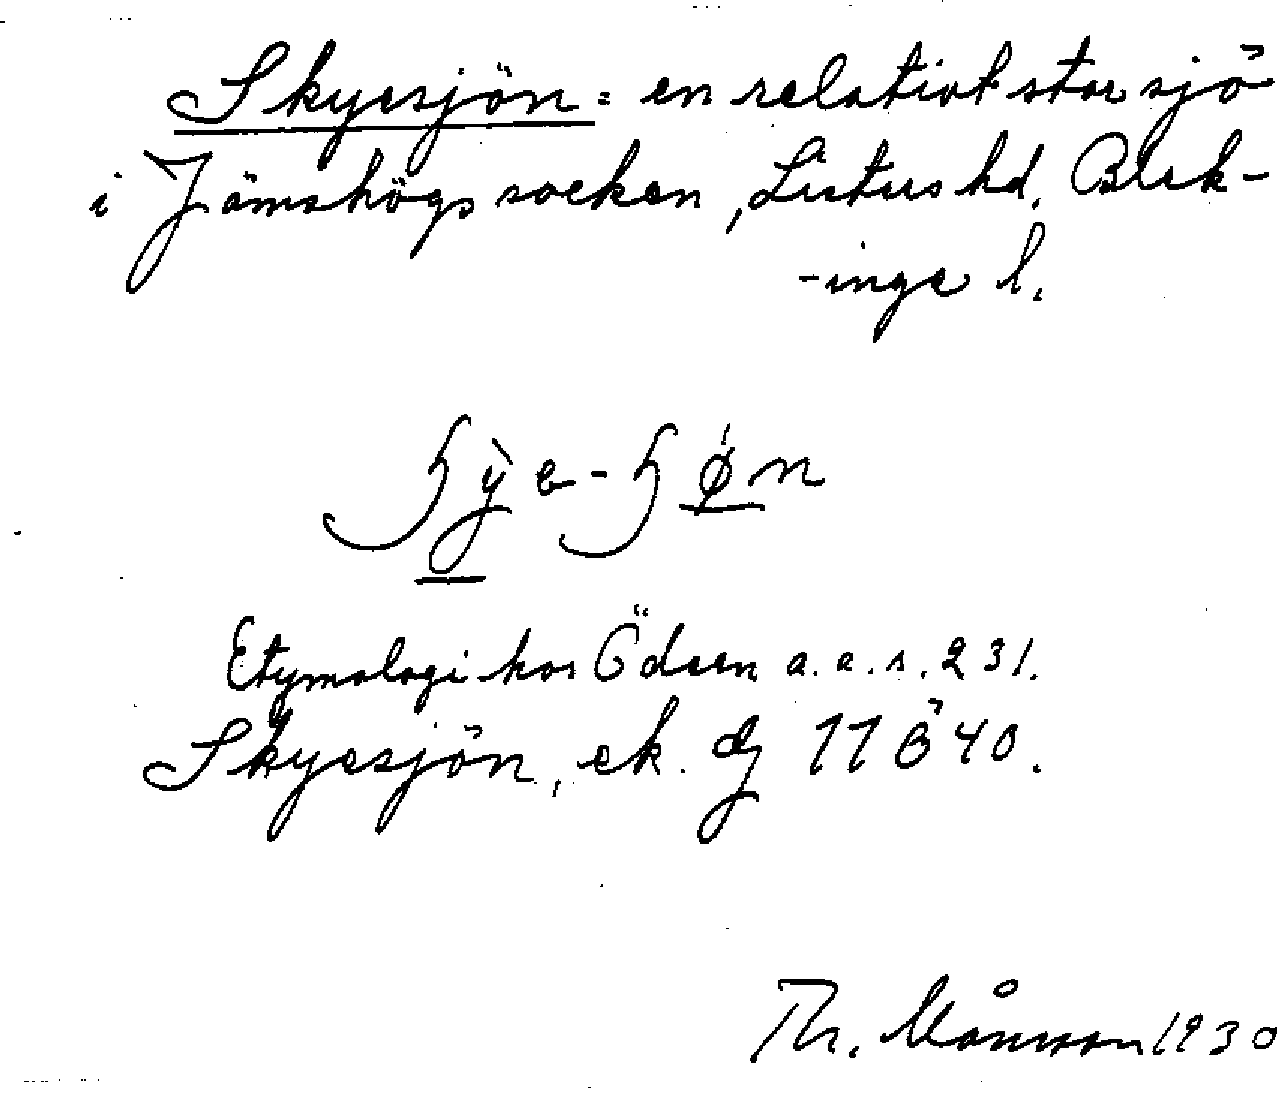 Skyesjön = en relativt stor sjö
i Jämshögs socken, Listers hd. Blek-
-inge l.
Etymologi hos Ödeen a. a. s. 231.
Skyesjön, ek. 11840.
Th. Månsson 1930